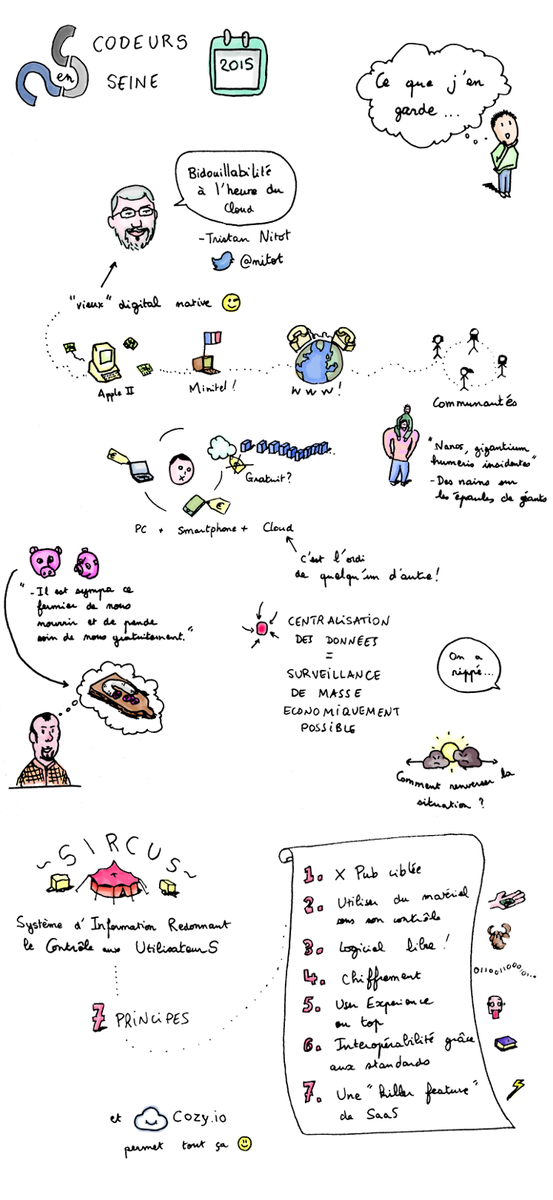 CODEURS
en
SEINE
2015
Ce que j'en
garde ...
Bidouillabilité
à l'heure du
Cloud
- Tristan Nitot
@nitot
"vieux" digital native
Apple II
Minitel !
WWW !
Communautés
"Nanos, gigantium
humeris insidentes"
- Des nains sur
les épaules de géants
Gratuit ?
PC + Smartphone + Cloud
c'est l'ordi
de quelqu'un d'autre !
"- Il est sympa ce
fermier de nous
nourrir et de prendre
soin de nous gratuitement."
CENTRALISATION
DES DONNÉES
=
SURVEILLANCE
DE MASSE
ECONOMIQUEMENT
POSSIBLE
On a
rippé...
Comment renverser la
situation ?
~ SIRCUS ~
Système d'Information Redonnant
le Contrôle aux UtilisateurS
7 PRINCIPES
1. X Pub ciblée
2. Utiliser du matériel
sous son contrôle
3. Logiciel libre !
4. Chiffrement
011001100
5. User Experience
au top
6. Interopérabilité grâce
aux standards
7. Une "Killer feature"
de SaaS
et Cozy.io
permet tout ça